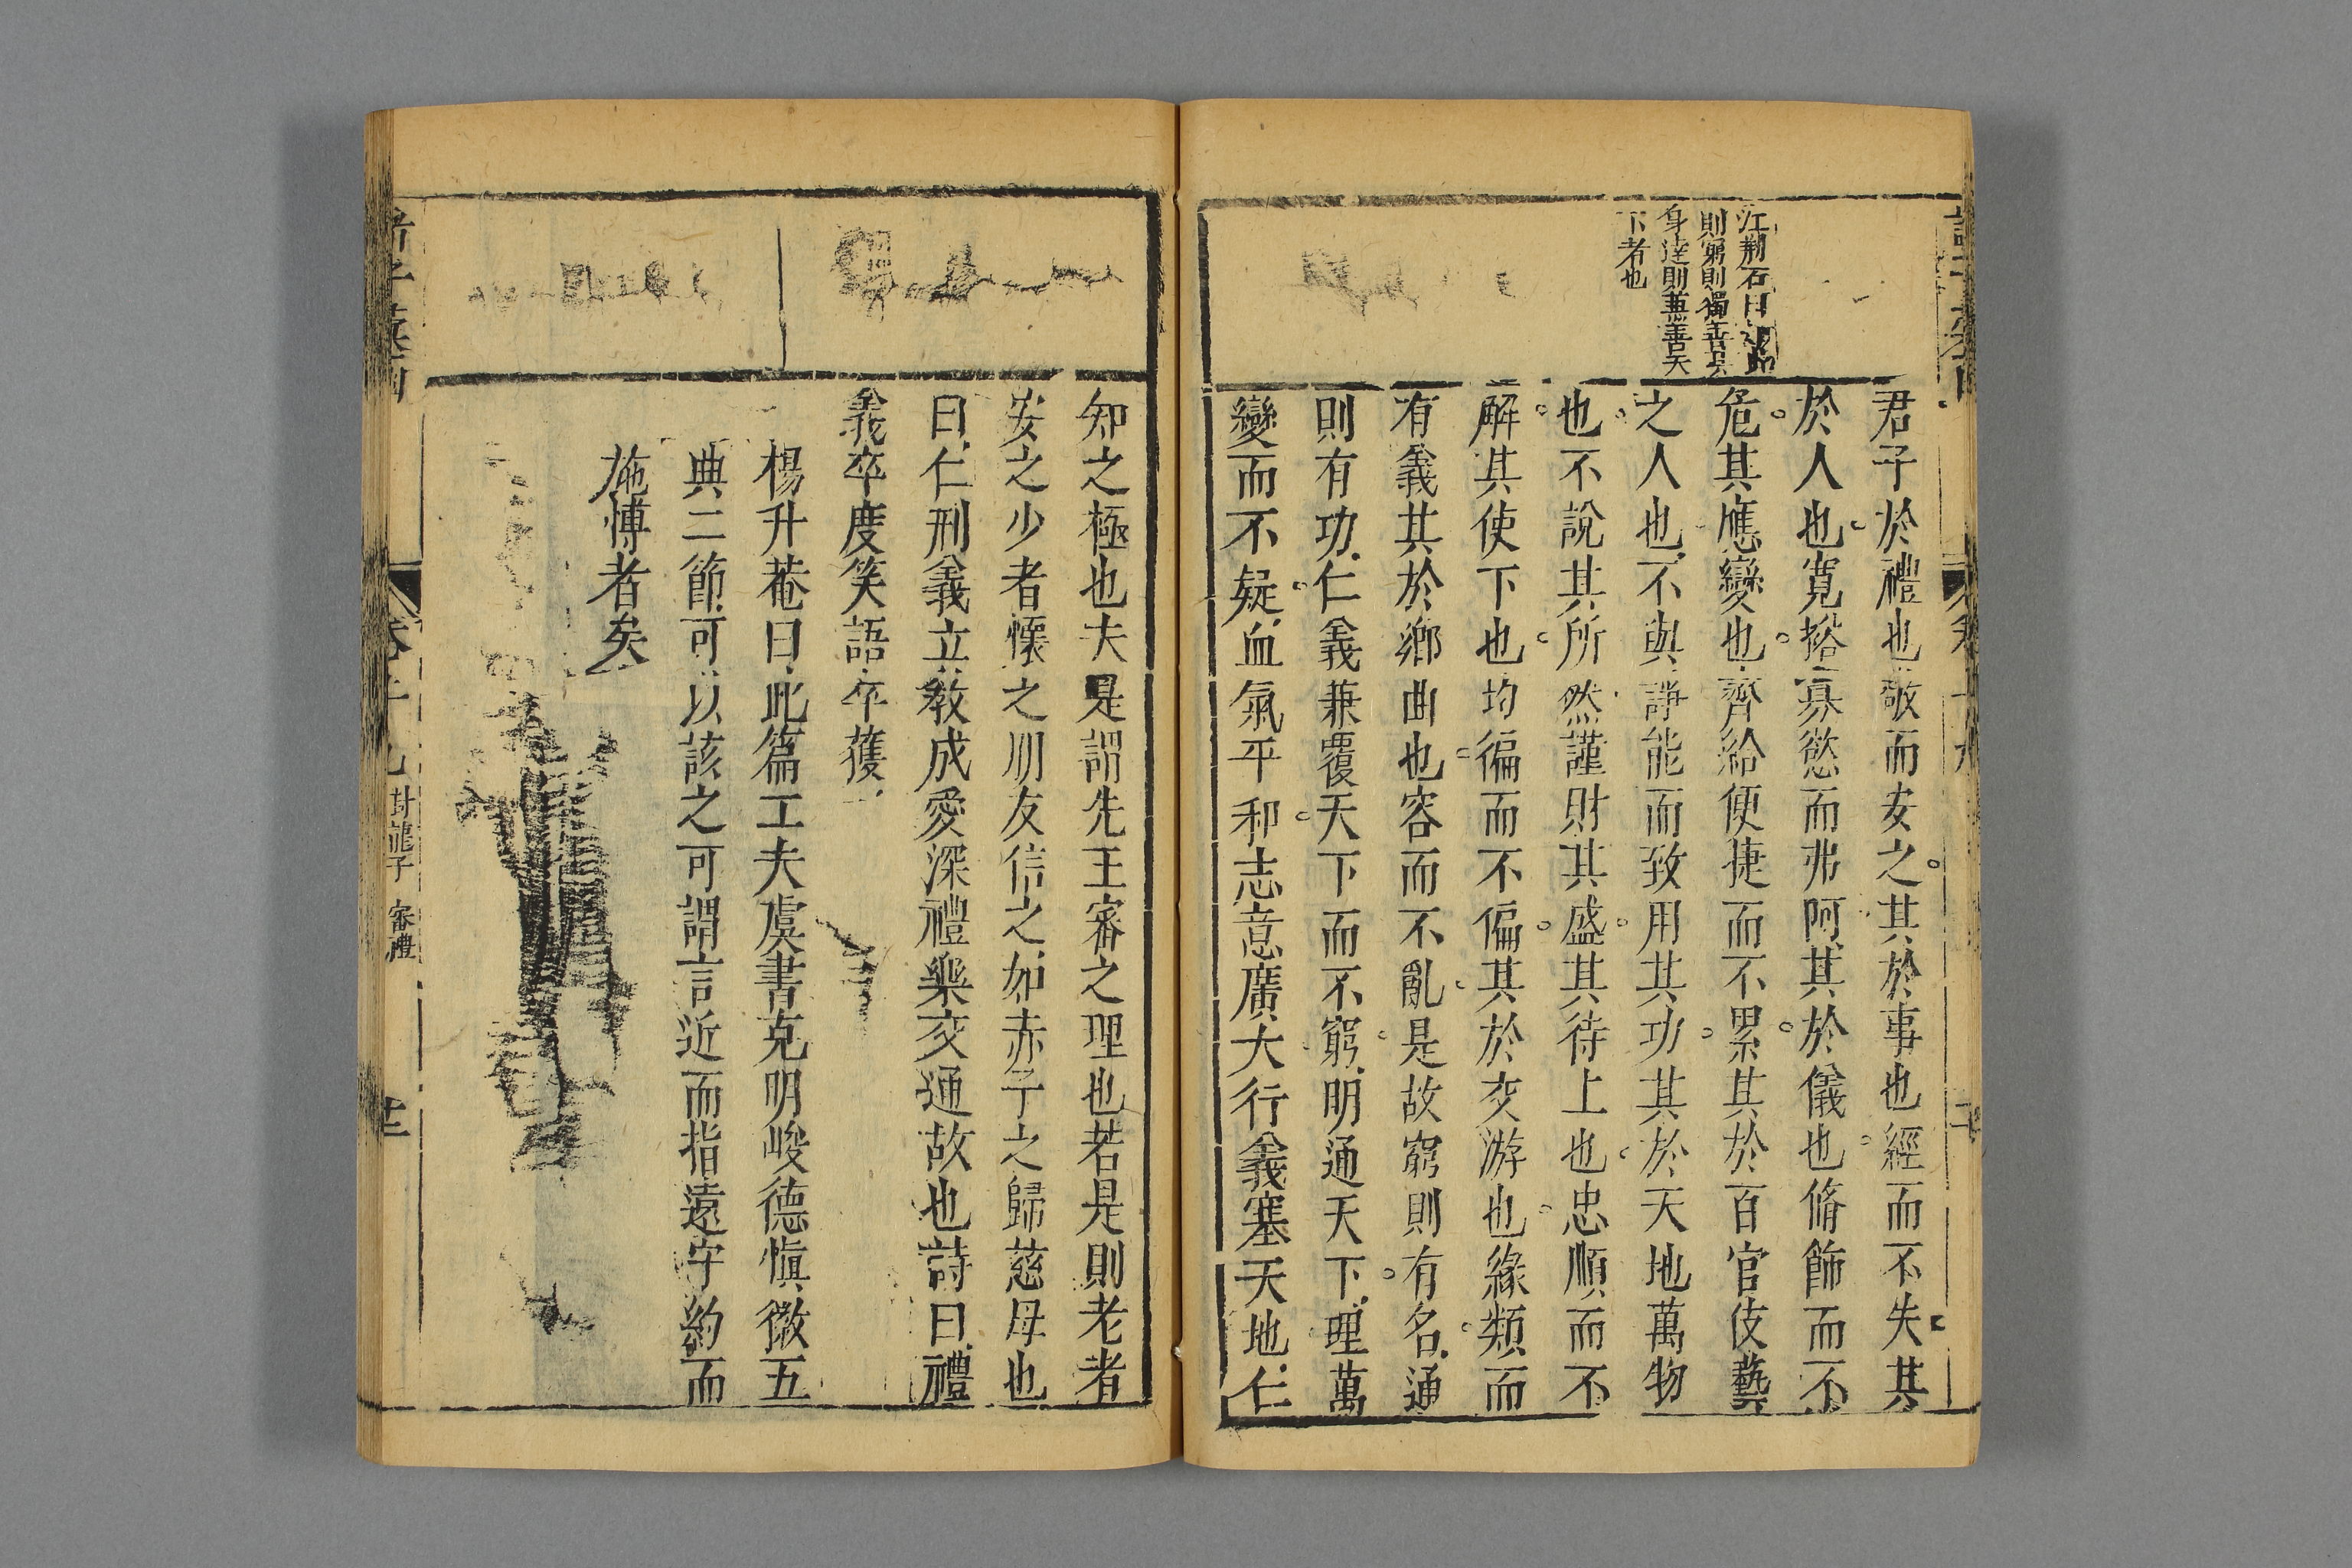 江荆石曰
則窮則獨善其
身達則兼善天
下者也
君子於禮也敬而安之其於事也經而不失其
於人也寬裕寡慾而弗阿其於儀也脩飾而不
危其應變也齊給便捷而不累其於百官伎藝
之人也不與諍能而致用其功其於天地萬物
也不說其所然謹財其盛其待上也忠順而不
解其使下也均徧而不偏其於交游也緣類而
有義其於鄉曲也容而不亂是故窮則有名通
則有功仁義兼覆天下而不窮明通天下理萬
變而不疑血氣平和志意廣大行義塞天地仁
知之極也夫是謂先王審之理也若是則老者
安之少者懷之朋友信之如赤子之歸慈母也
曰仁刑義立教成愛深禮樂交通故也詩曰禮
義卒度笑語卒獲
楊升菴曰此篇工夫虞書克明峻德慎徽五
典二節可以該之可謂言近而指遠守約而
施博者矣
封龍子 審禮